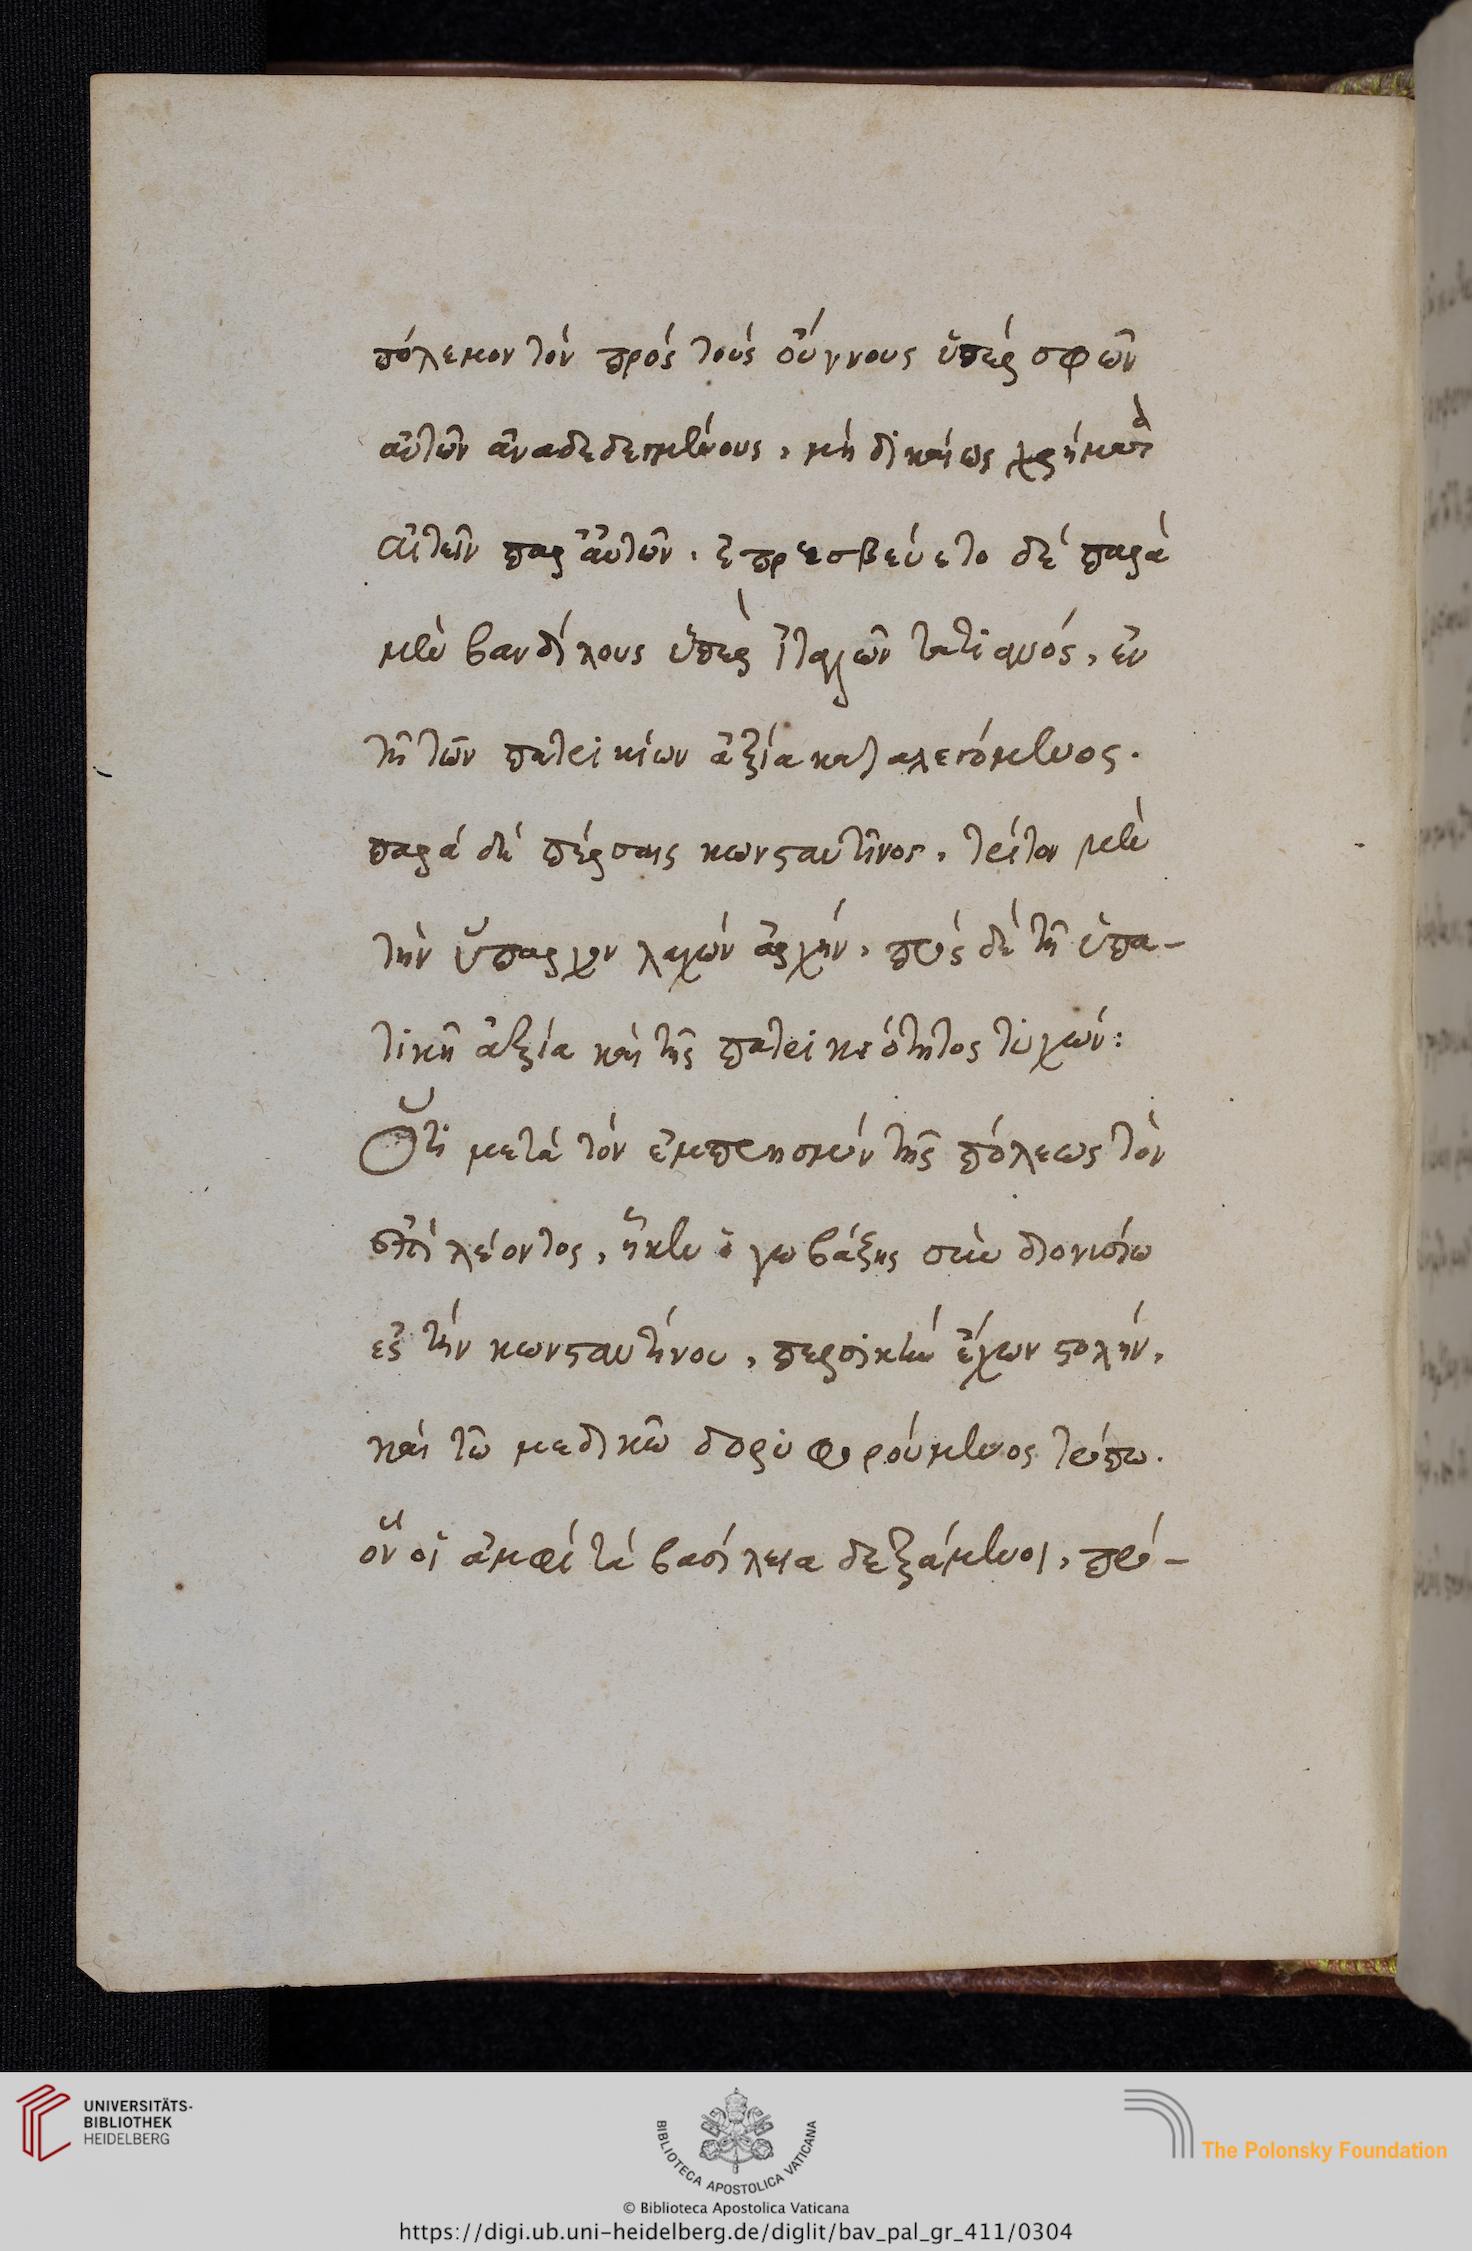 πόλεμον τὸν πρὸς τοὺς οὔννους ὑπὲρ σφῶν
αὐτῶν ἀναδεδεγμένους, μὴ δικαίως χρήματα
αἰτεῖν παρ' αὐτῶν. ἐπρεσβεύετο δὲ παρὰ
μὲν βανδίλους ὑπὲρ ἰταλῶν τατιανός, ἐν
τῇ τῶν πατρικίων ἀξία καταλεγόμενος.
παρὰ δὲ πέρσαις κωνσταντῖνος, τρίτον μὲν
τὴν ὕπαρχον λαχών ἀρχήν, πρὸς δὲ τῇ ὑπα-
τικῆ ἀξία καὶ τῆς πατρικιότητος τυχών:
Ὅτι μετὰ τὸν ἐμπρησμὸν τῆς πόλεως τὸν
ἐπὶ λέοντος, ἧκεν ὁ γωβάζης σὺν διονυσίω
ἐς τὴν κωνσταντίνου, περσικὴν ἔχων στολήν,
καὶ τῶ μεδικῶ δορυφορούμενος τρόπω.
ὃν οἱ ἀμφὶ τὰ βασίλεια δεξάμενοι, πρό-
UNIVERSITÄTS-
BIBLIOTHEK
HEIDELBERG
BIBLIOTHECA APOSTOLICA VATICANA
The Polonsky Foundation
© Biblioteca Apostolica Vaticana
https://digi.ub.uni-heidelberg.de/diglit/bav_pal_gr_411/0304